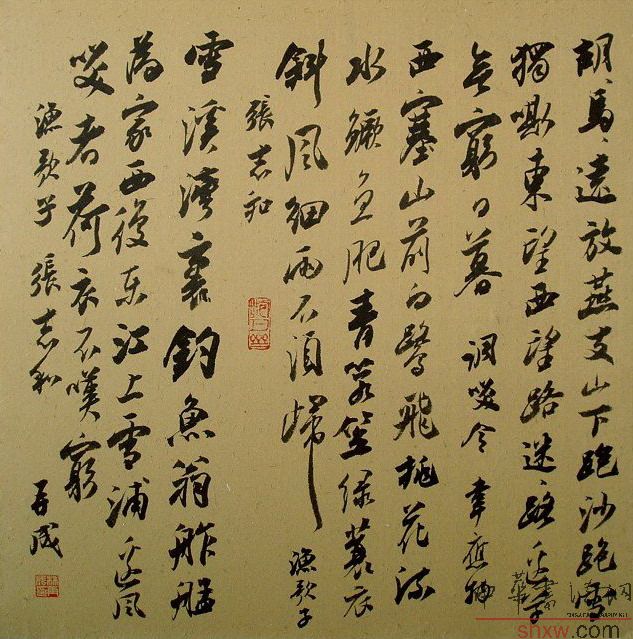 胡、馬、遠放燕支山下跑沙跑雪
獨嘶東望西望路迷、路邊草
無窮日暮 調笑令 韋應物
西塞山前白鷺飛桃花流
水鱖魚肥青箬笠綠蓑衣
斜風細雨不須歸 漁歌子
張志和
雪溪灣裏釣魚翁舴艋
為家西復東江上雪浦邊風
笑著荷衣不嘆窮
漁歌子 張志和
shxw.com